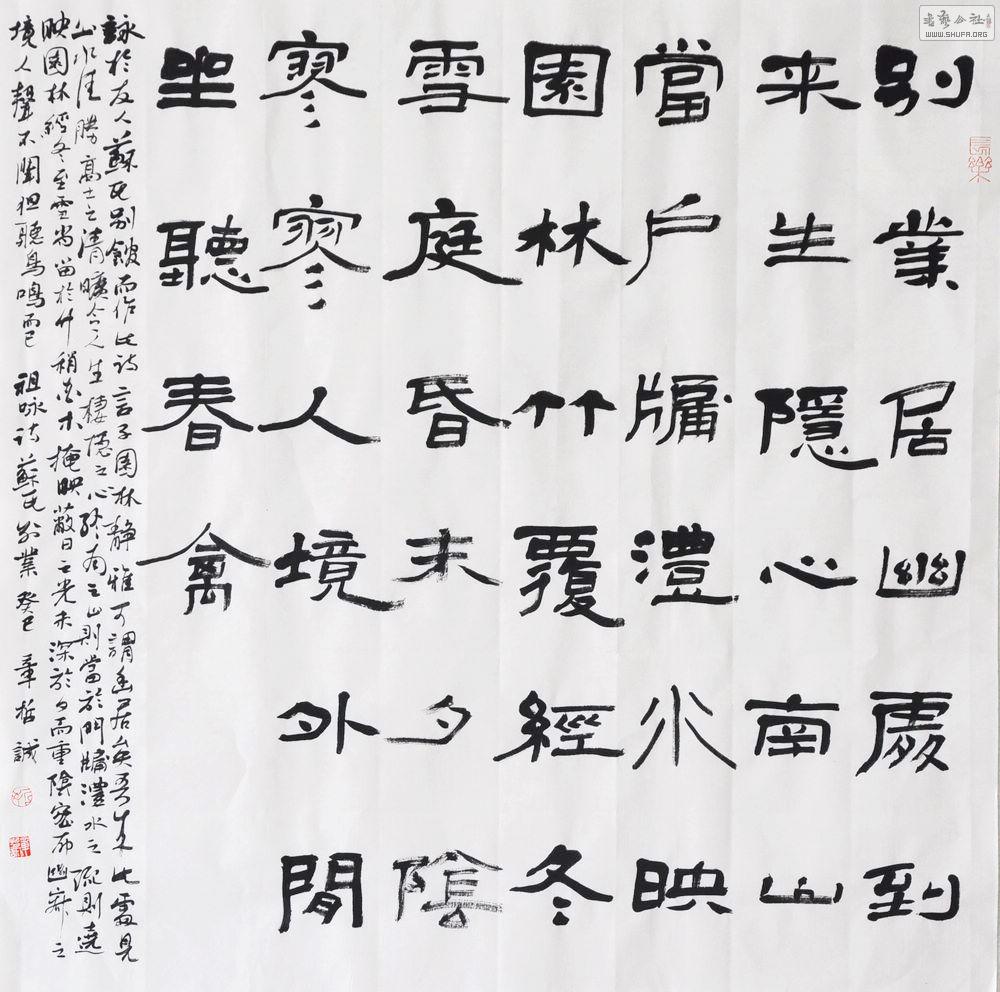 别業居幽處到
来生隱心南山
當戶牖澧水映
園林竹覆經冬
雪庭昏未夕陰
寥寥人境外閒
坐聽春禽
詠於友人蘇氏别館而作此詩言子園林靜雅可謂幽居矣吾来此靈見
山水佳勝高士之清曠令人生棲隱之心終南之山則當於門牖澧水之流則遶
映園林經冬至雪尚留於竹稍杂木掩映蔽日之光未深於夕而重陰密布幽寂之
境人聲不聞但聽鳥鳴而已 祖咏詩蘇氏别業癸巳 章哲誠
長樂
書藝公社
WWW.SHUFA.ORG